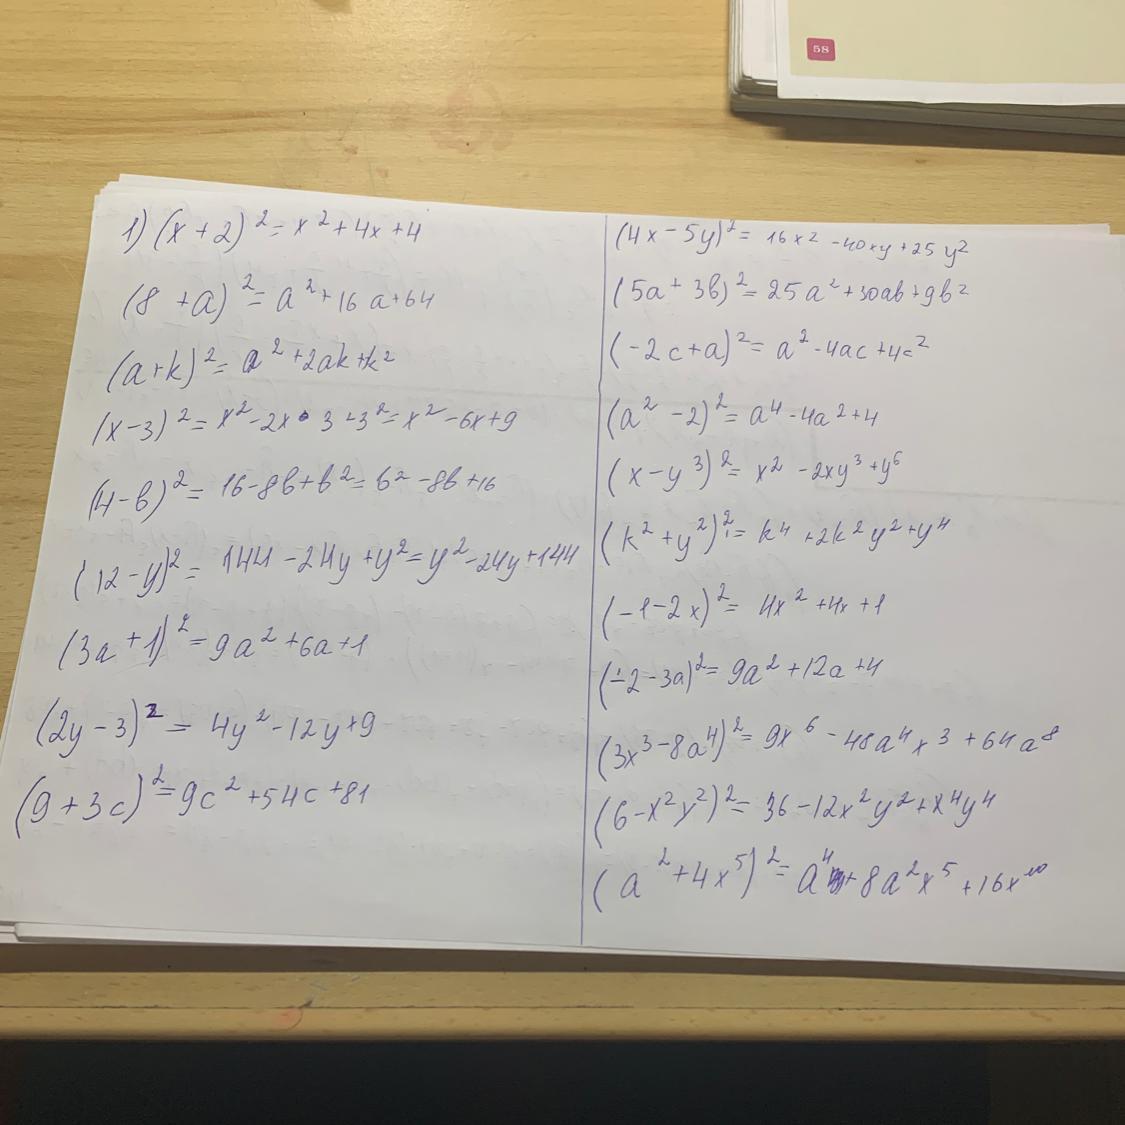 58
1) (x + 2)² = x² + 4x + 4
(8 + a)² = a² + 16a + 64
(a + k)² = a² + 2ak + k²
(x - 3)² = x² - 2x • 3 + 3² = x² - 6x + 9
(4 - b)² = 16 - 8b + b² = b² - 8b + 16
(12 - y)² = 144 - 24y + y² = y² - 24y + 144
(3a + 1)² = 9a² + 6a + 1
(2y - 3)² = 4y² - 12y + 9
(9 + 3c)² = 9c² + 54c + 81
(4x - 5y)² = 16x² - 40xy + 25y²
(5a + 3b)² = 25a² + 30ab + 9b²
(-2c + a)² = a² - 4ac + 4c²
(a² - 2)² = a⁴ - 4a² + 4
(x - y³)² = x² - 2xy³ + y⁶
(k² + y²)² = k⁴ + 2k²y² + y⁴
(-1 - 2x)² = 4x² + 4x + 1
(-2 - 3a)² = 9a² + 12a + 4
(3x³ - 8a⁴)² = 9x⁶ - 48a⁴x³ + 64a⁸
(6 - x²y²)² = 36 - 12x²y² + x⁴y⁴
(a² + 4x⁵)² = a⁴ + 8a²x⁵ + 16x¹⁰